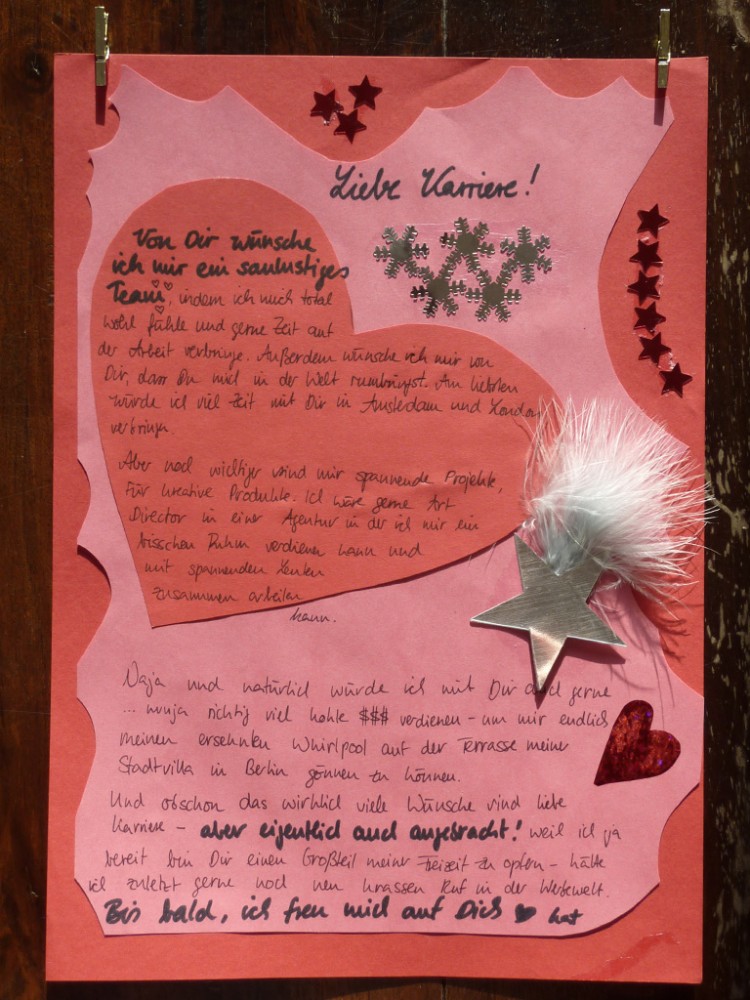 Liebe Karriere!
Von Dir wünsche
ich mir ein saulustiges
Team, indem ich mich total
wohl fühle und gerne Zeit auf
der Arbeit verbringe. Außerdem wünsche ich mir von
Dir, dass Du mich in der Welt rumbringst. Am liebsten
würde ich viel Zeit mit Dir in Amsterdam und London
verbringen.
Aber noch wichtiger sind mir spannende Projekte,
für kreative Produkte. Ich wäre gerne Art
Director in einer Agentur in der ich mir ein
bisschen Ruhm verdienen kann und
mit spannenden Leuten
zusammen arbeiten
kann.
Naja und natürlich würde ich mit Dir auch gerne
... nunja richtig viel Kohle $$$ verdienen – um mir endlich
meinen ersehnten Whirlpool auf der Terrasse meiner
Stadtvilla in Berlin gönnen zu können.
Und obschon das wirklich viele Wünsche sind liebe
Karriere – aber eigentlich auch angebracht! weil ich ja
bereit bin Dir einen Großteil meiner Freizeit zu opfern – hätte
ich zuletzt gerne noch nen krassen Ruf in der Werbewelt.
Bis bald, ich freu mich auf Dich ♥ kat